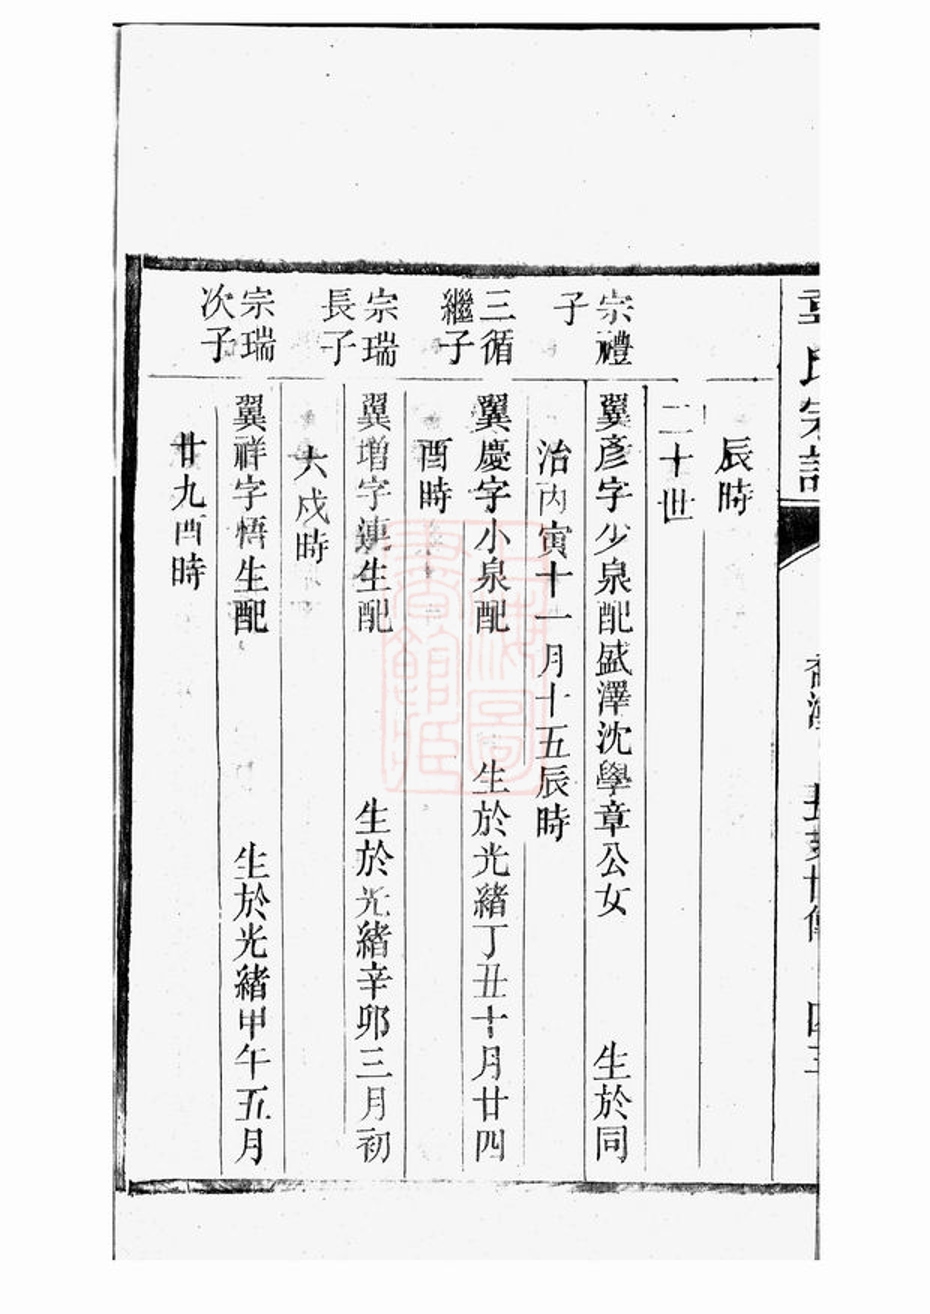 氏宗譜
長芽世傳
四三
辰時
二十世
宗禮
子
翼彥字少泉配盛澤沈學章公女 生於同
治丙寅十一月十五辰時
三循
繼子
翼慶字小泉配 生於光緒丁丑十月廿四
酉時
宗瑞
長子
翼增字蓮生配 生於光緒辛卯三月初
六戍時
宗瑞
次子
翼祥字悟生配 生於光緒甲午五月
廿九酉時